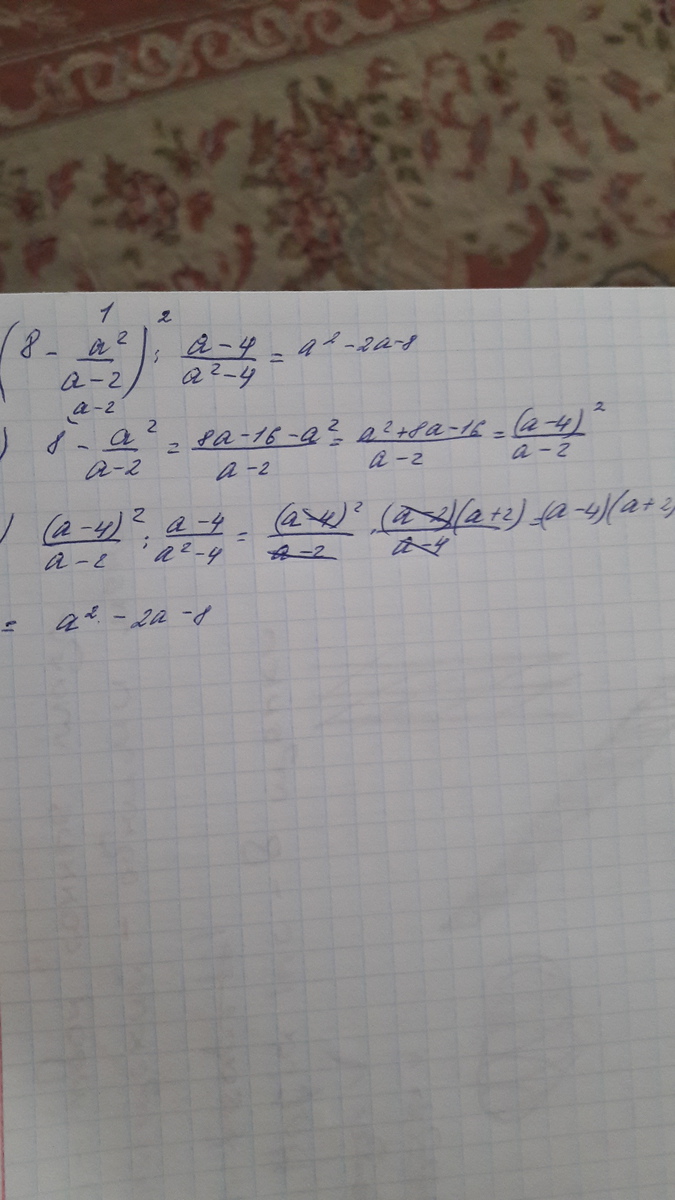 1 2
(8 - a²/(a-2)) : (a-4)/(a²-4) = a²-2a-8
) 8 - a²/(a-2) = (8a-16-a²)/(a-2) = (a²+8a-16)/(a-2) = (a-4)²/(a-2)
a-2
) (a-4)²/(a-2) : (a-4)/(a²-4) = (a-4)²/(a-2) · (a-2)(a+2)/(a-4) = (a-4)(a+2)
= a² - 2a - 8